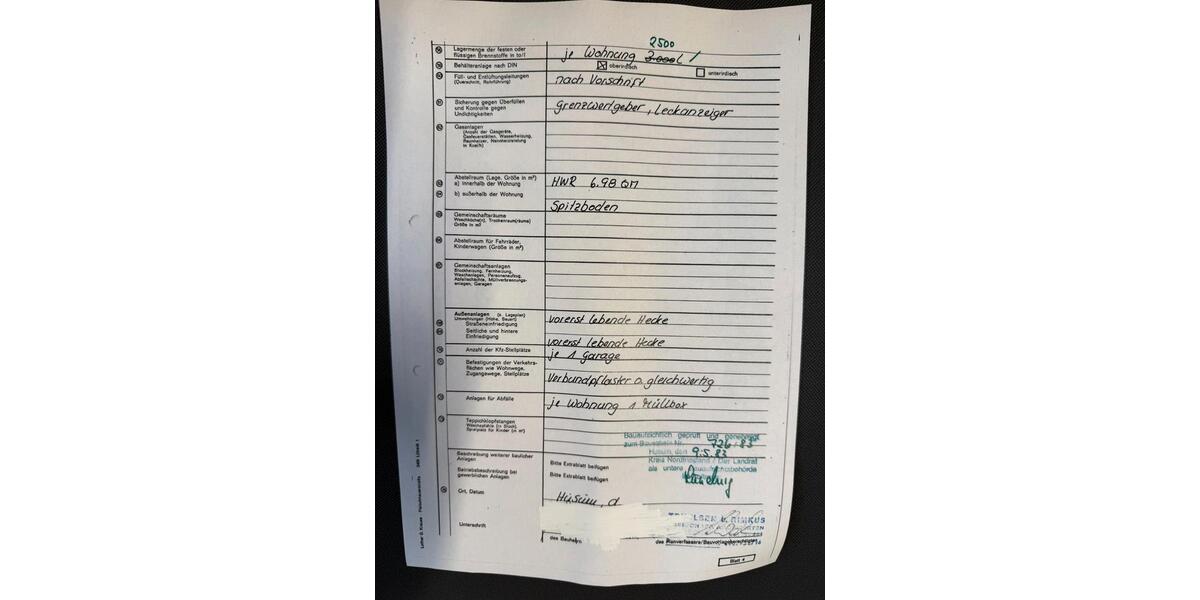 2500
Lagermenge der festen oder
flüssigen Brennstoffe in to/l
je Wohnung 3.000 l /
Behälteranlage nach DIN
oberirdisch
unterirdisch
Füll- und Entlüftungsleitungen
(Querschnitt, Rohrführung)
nach Vorschrift
Sicherung gegen Überfüllen
und Kontrolle gegen
Undichtigkeiten
Grenzwertgeber, Leckanzeiger
Gasanlagen
(Anzahl der Gasgeräte,
Gasfeuerstätten, Wasserheizung,
Raumheizer, Nennheizleistung
Abstellraum (Lage, Größe in m²)
a) innerhalb der Wohnung
HWR 6.98 QM
b) außerhalb der Wohnung
Spitzboden
Gemeinschaftsräume
Waschküche(n), Trockenraum(räume)
Größe in m²
Abstellraum für Fahrräder,
Kinderwagen (Größe in m²)
Gemeinschaftsanlagen
Blockheizung, Fernheizung,
Waschanlagen, Personenaufzug,
Abfallschächte, Müllverbrennungs-
anlagen, Garagen
Außenanlagen (s. Lageplan)
Umwehrungen (Höhe, Bauart)
Straßeneinfriedigung
vorerst lebende Hecke
Seitliche und hintere
Einfriedigung
vorerst lebende Hecke
Anzahl der Kfz-Stellplätze
je 1 Garage
Befestigungen der Verkehrs-
flächen wie Wohnwege,
Zugangswege, Stellplätze
Verbundpflaster o. gleichwertig
Anlagen für Abfälle
je Wohnung 1 Müllbox
Teppichklopfstangen
Wäschepfähle (in Stück)
Spielplatz für Kinder (in m²)
Bauaufsichtlich geprüft und genehmigt
zum Bauschein Nr. 726-83
Husum, den 9.5.83
Kreis Nordfriesland / Der Landrat
als untere Bauaufsichtsbehörde
Beschreibung weiterer baulicher
Anlagen
Bitte Extrablatt beifügen
Betriebsbeschreibung bei
gewerblichen Anlagen
Bitte Extrablatt beifügen
Ort, Datum
Husum, d
Unterschrift
des Bauherrn
des Planverfassers/Bauvorlageberechtigten
Blatt 4